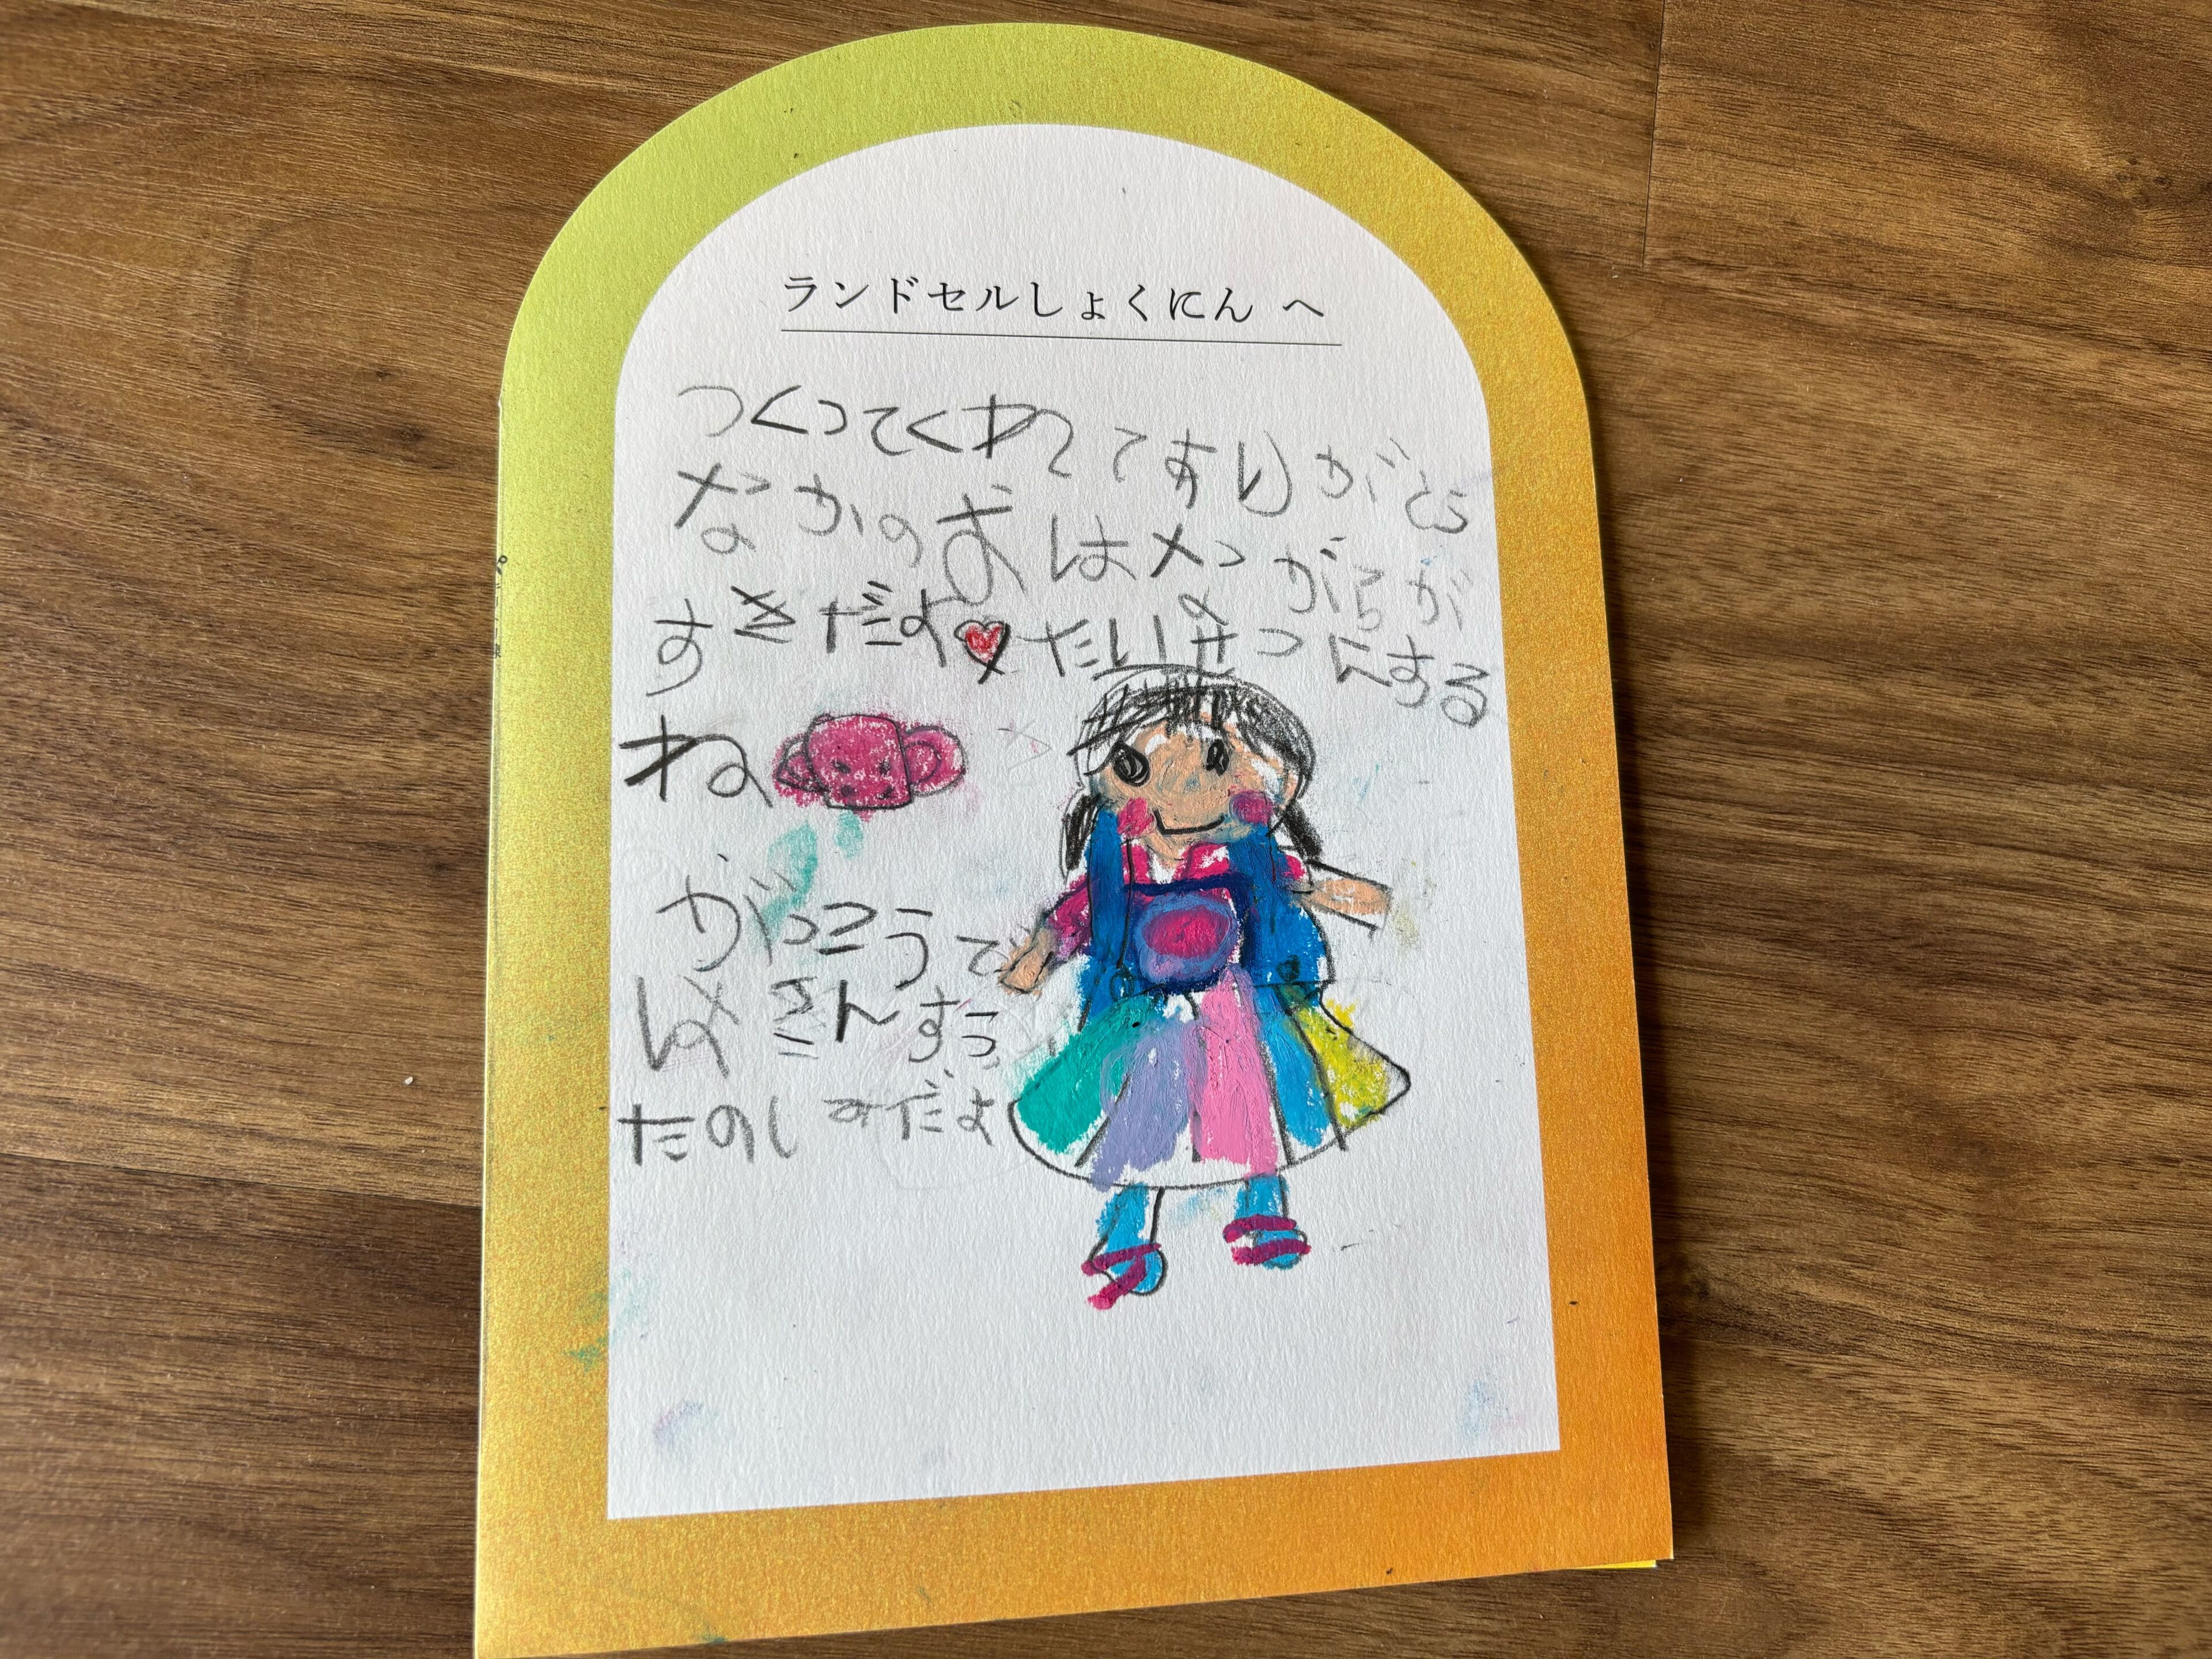 ランドセルしょくにん へ
つくってくれてありがとう
なかのおはながらが
すきだよ♥たいせつにする
ね
がっこうで
はさんすう
たのしみだよ